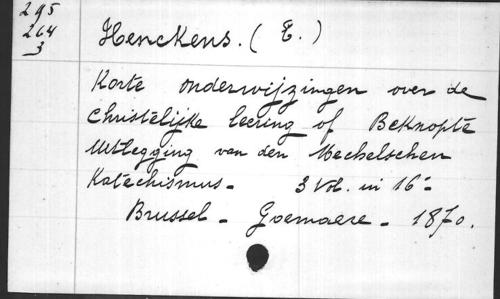 295
264
3
Henckens. ( E. )
Korte onderwijzingen over de
Christelijke leering of Beknopte
Uitlegging van den Mechelschen
Katechismus - 3 Vol. in 16°-
Brussel - Goemaere - 1870.